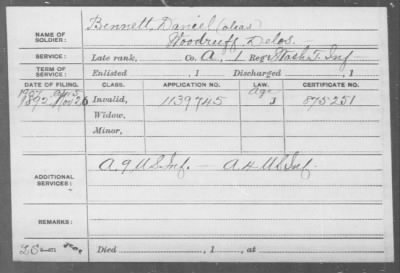 Bennett, Daniel (alias)
NAME OF SOLDIER: Woodruff, Delos.
SERVICE: Late rank, Co. A, 1 Reg't Wash. T. Inf
TERM OF SERVICE: Enlisted , 1 Discharged , 1
DATE OF FILING. CLASS. APPLICATION NO. LAW. CERTIFICATE NO.
1907
1892 Nov 26 Invalid, 1139745 Age J 875251
Widow,
Minor,
ADDITIONAL SERVICES: A 9 U.S. Inf. — A 4 U.S. Inf.
REMARKS:
Died , 1 , at